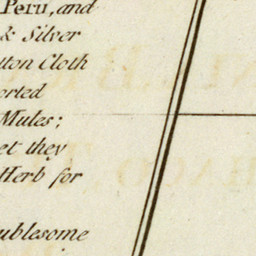 Peru, and
& Silver
tton Cloth
orted
Mules;
et they
Herb for
ublesome